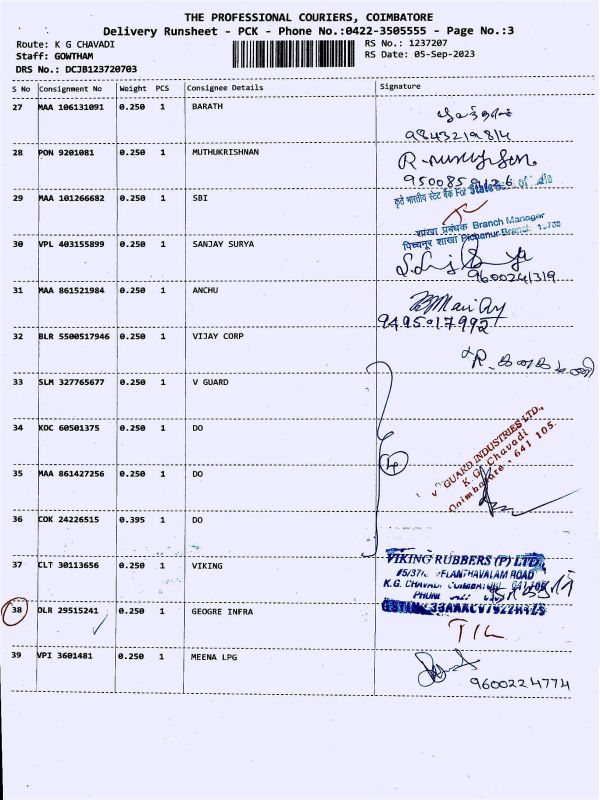 THE PROFESSIONAL COURIERS, COIMBATORE
Delivery Runsheet - PCK - Phone No.:0422-3505555 - Page No.:3
Route: K G CHAVADI RS No.: 1237207
Staff: GOWTHAM RS Date: 05-Sep-2023
DRS No.: DCJB123720703
S No Consignment No Weight PCS Consignee Details Signature
27 MAA 106131091 0.250 1 BARATH
9843219814
28 PON 9201081 0.250 1 MUTHUKRISHNAN
29 MAA 101266682 0.250 1 SBI
कृते भारतीय स्टेट बैंक For State Bank of India
शाखा प्रबंधक Branch Manager
पिच्चनूर शाखा Pichanur Branch
30 VPL 403155899 0.250 1 SANJAY SURYA
9600241319
31 MAA 861521984 0.250 1 ANCHU
9495017992
32 BLR 5500517946 0.250 1 VIJAY CORP
33 SLM 327765677 0.250 1 V GUARD
34 KOC 60501375 0.250 1 DO
4
V GUARD INDUSTRIES LTD.,
K.G. Chavadi
Coimbatore - 641 105.
35 MAA 861427256 0.250 1 DO
36 COK 24226515 0.395 1 DO
37 CLT 30113656 0.250 1 VIKING
VIKING RUBBERS (P) LTD
VELANTHAVALAM ROAD
K.G. CHAVADI, COIMBATORE
PHONE
38 DLR 29515241 0.250 1 GEOGRE INFRA
T/L
39 VPI 3601481 0.250 1 MEENA LPG
9600224774